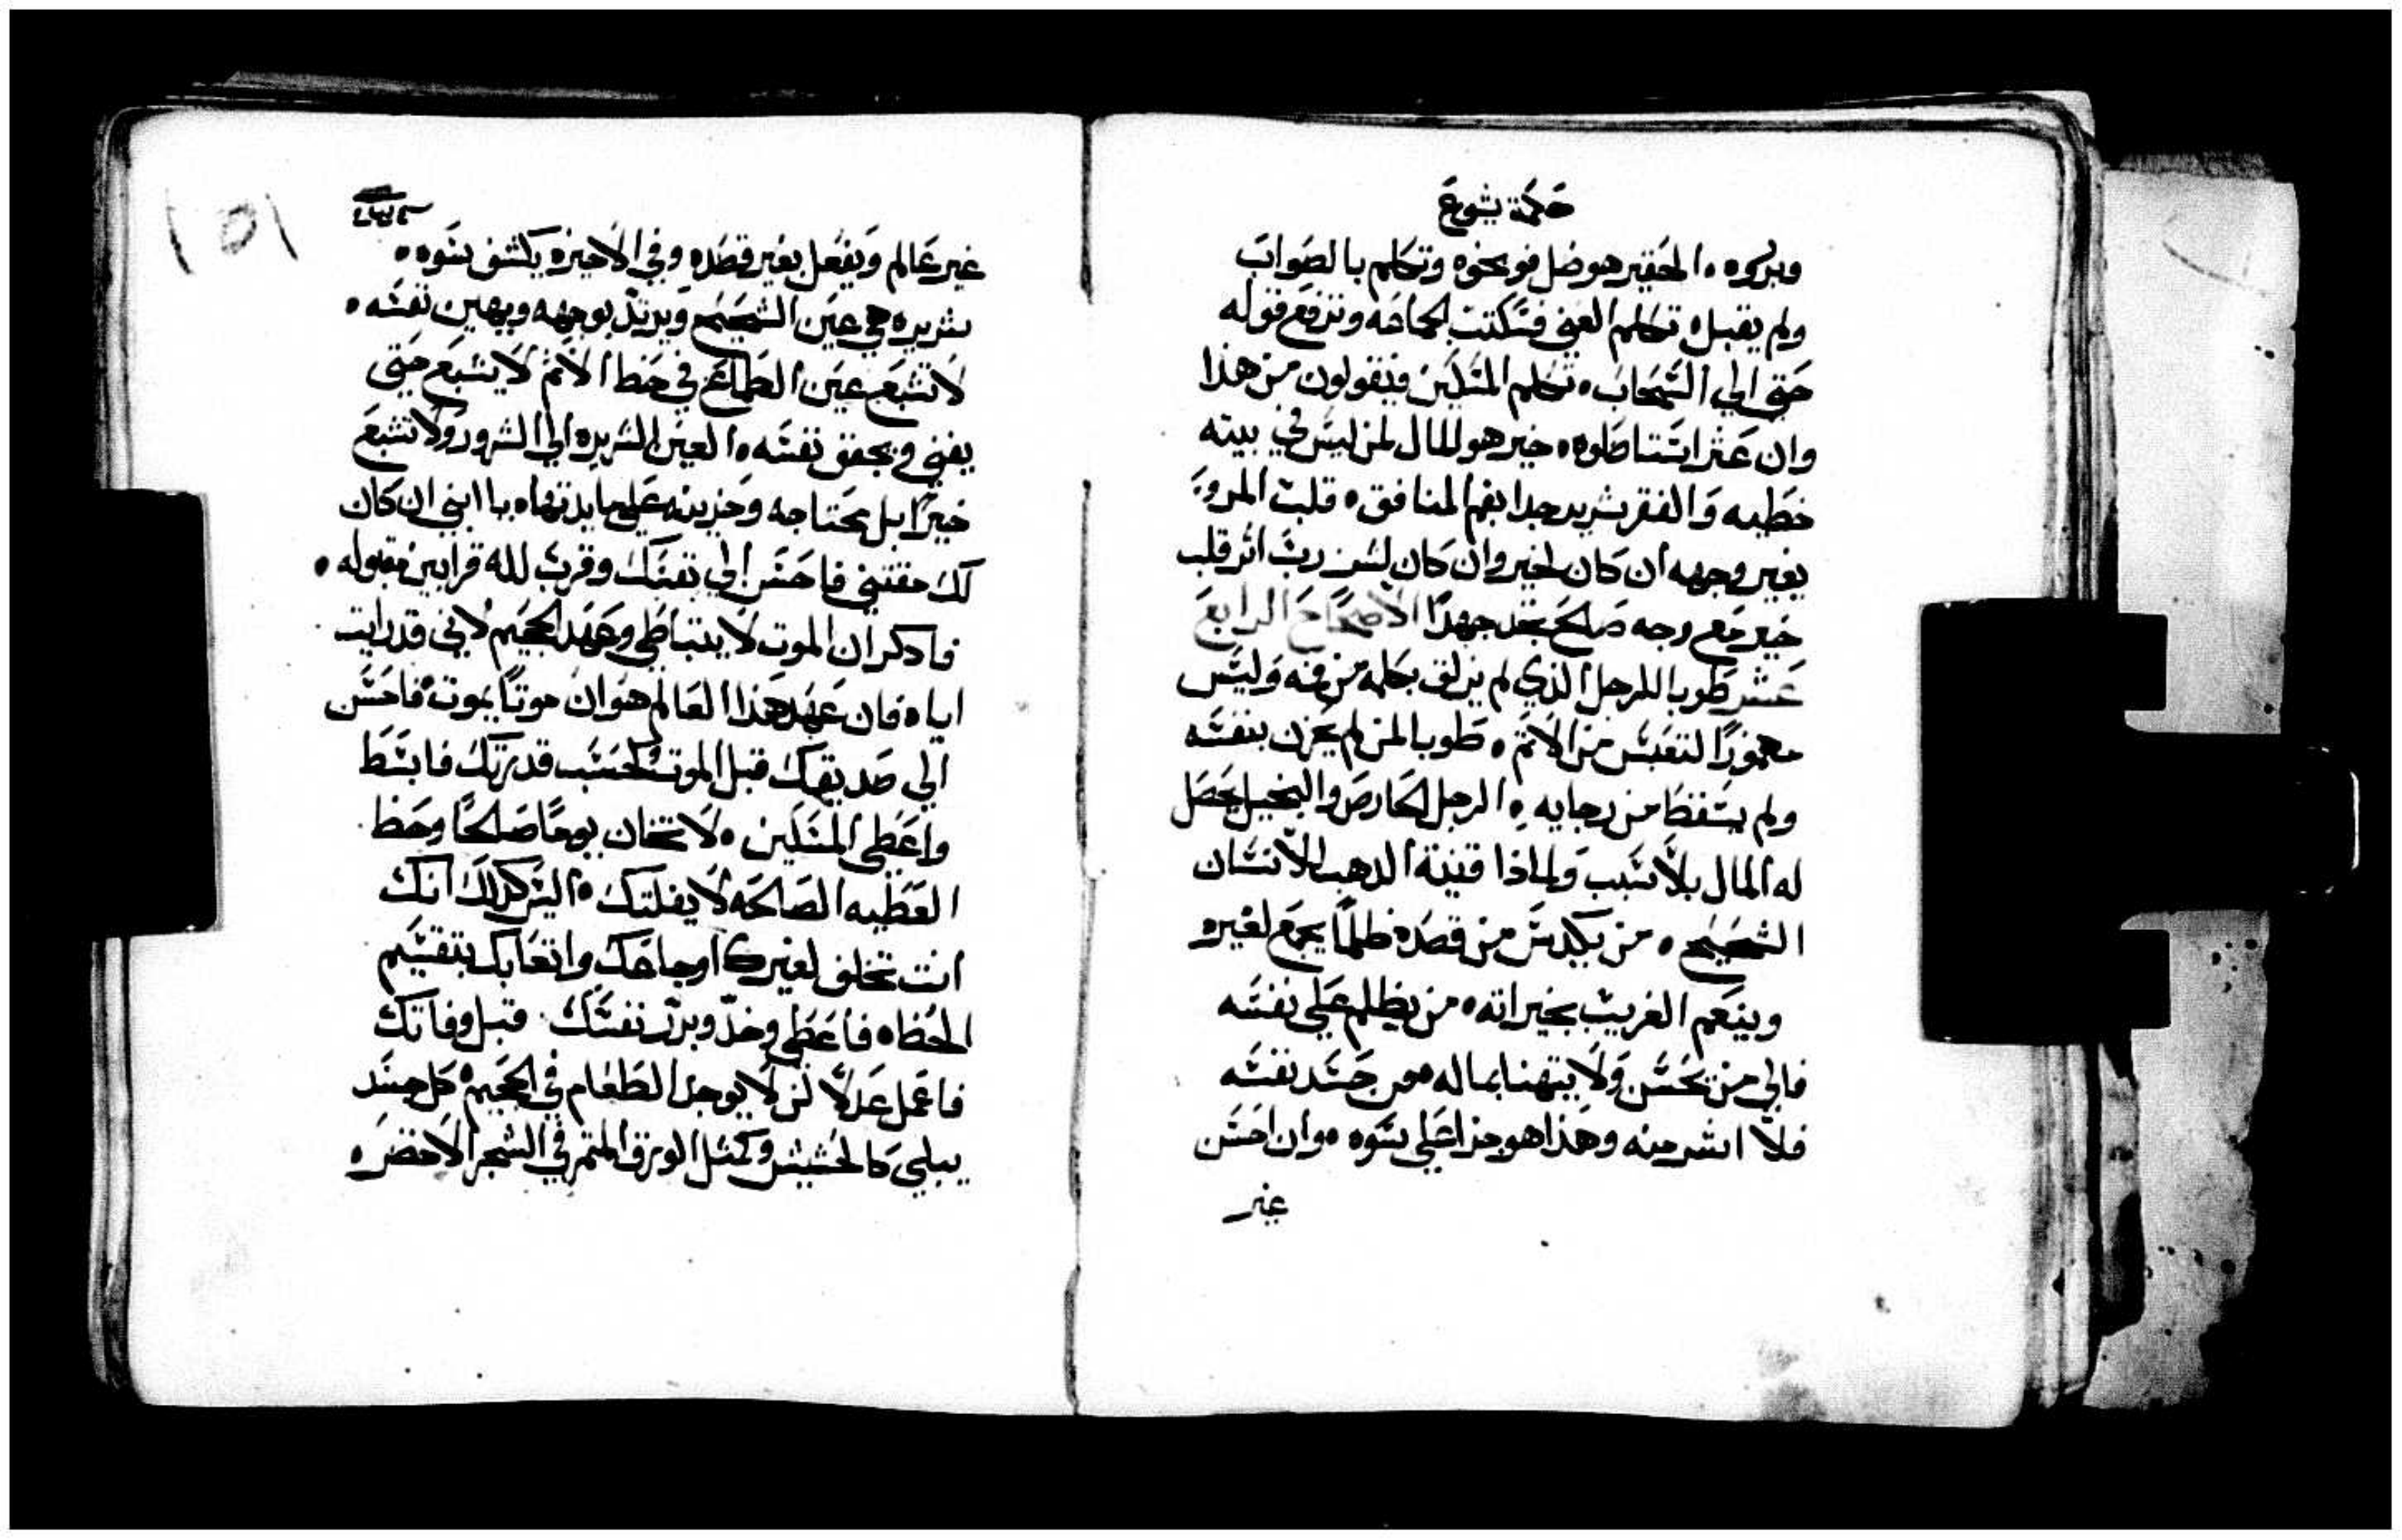 حكمة يشوع
وبرروه ٠ الحقير هو ضل فوبخوه وتكلم بالصواب
ولم يقبل ٥ تكلم الغني فسكتت الجماعه وترفع قوله
حتي الي السحاب ٥ تكلم المسكين فيقولون من هذا
وان عثر استاطلوه ٥ خير هو المال لمن ليس في بيته
خطيه والفقر شرير جدا بفم المنافق ٥ قلب المرو
يغير وجهه ان كان لخير وان كان لشر
خير مع وجه صالح تجد جهدا الاصحاح الرابع
عشر طوبا للرجل الذي لم يزلف بكلمة من فمه وليس
من الاثم ٥ طوبا لمن لم يحزن بنفسه
ولم يسقط من رجايه ٥ الرجل الحارص والبخيل يحصل
له المال بلا سبب ولماذا قنية الدهب للانسان
الشحيح ٥ من يكدس من قصده ظلما يجمع لغيره
وينعم الغريب بخيراته ٥ من يظلم علي نفسه
فالي من يحسن ولا يتهنا بماله ٥ من حسد نفسه
فلا اشر منه وهذا هو جزا علي سوه ٥ وان احسن
غير
غير عالم ويفعل بغير قصده وفي الاخيره يكشف سوه ٥
شريره هي عين الشحيح ويرتد بوجهه ويهين نفسه ٥
لا تشبع عين الطماع في حظ الاثم لا يشبع حتي
يفني ويجفف نفسه ٥ العين الشريره الي الشرور ولا تشبع
خبزا بل يحتاجه وحزينه علي مايدتها ٥ يا ابني ان كان
لك مقتني فاحسن الي نفسك وقرب لله قرابين مقبوله ٥
فادكر ان الموت لا يتباطي وعهد الجحيم لاني قد رايت
اياه فان عهد هذا العالم هو ان موتا يموت ٥ فاحسن
الي صديقك قبل الموت وكحسب قدرتك فابسط
واعطي المسكين ٥ لا تخان يوما صالحا وحظ
العطيه الصالحه لا يفلتك ٥ اليس كدلك انك
انت تخلف لغيرك اوجاعك واتعابك بتقسيم
الحظا ٥ فاعطي وخد وبرر نفسك ٠ قبل وفاتك
فاعمل عدلا لن لا يوجد الطعام في الجحيم ٥ كل جسد
يبلي كالحشيش وكمثل الورق المتمر في الشجر الاخضر ٥